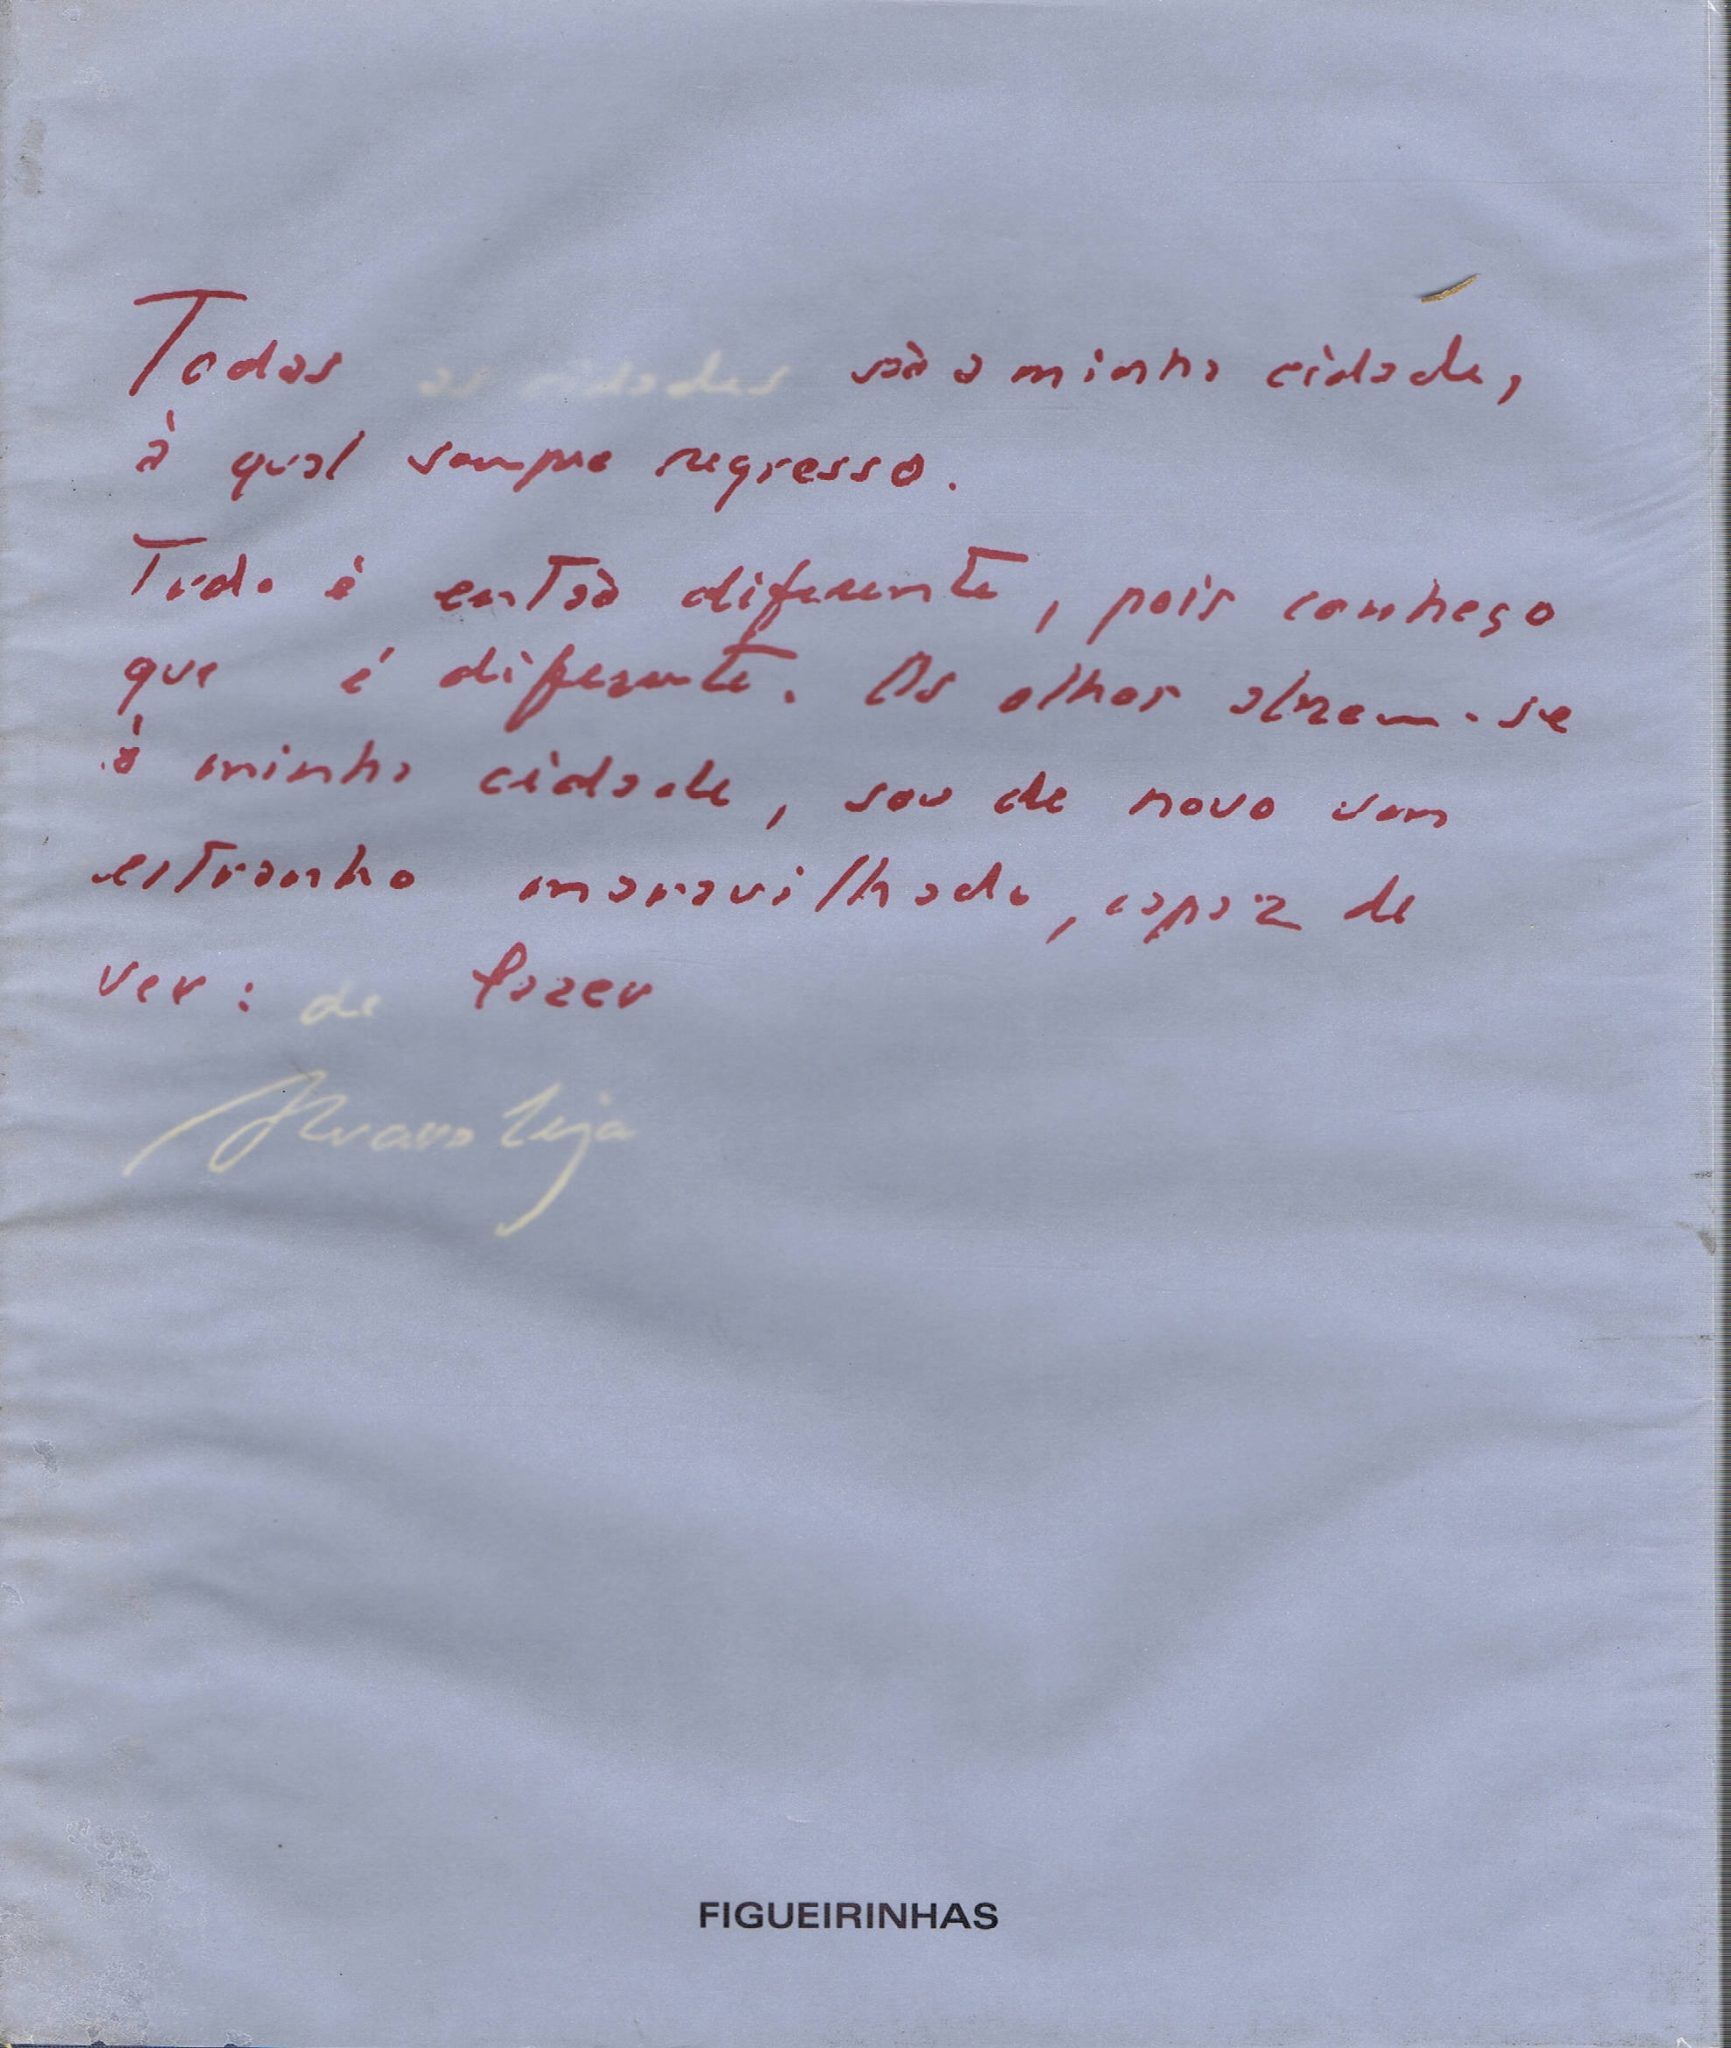 Todas as cidades são a minha cidade,
à qual sempre regresso.
Tudo é então diferente, pois conheço
que é diferente. Os olhos abrem-se
à minha cidade, sou de novo um
estranho maravilhado, capaz de
ver: de fazer
Alvaro Siza
FIGUEIRINHAS